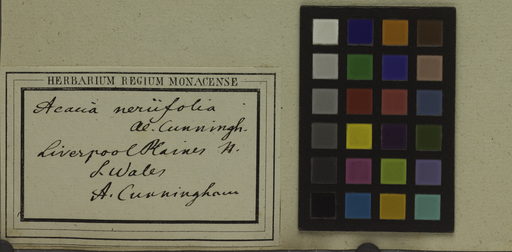 HERBARIUM REGIUM MONACENSE
Acacia neriifolia
Al. Cunningh.
Liverpool Plaines N.
S. Wales
A. Cunningham